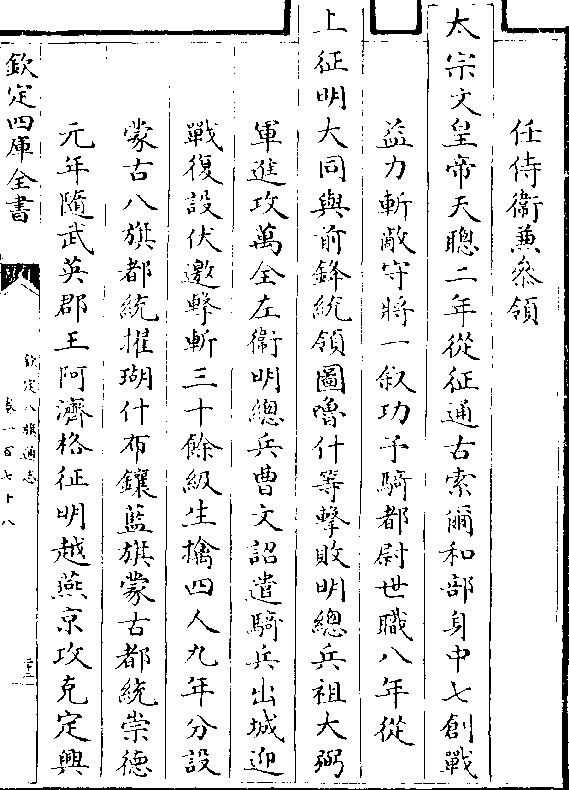 任侍衛兼叅領
太宗文皇帝天聰二年從征通古索爾和部身中七創戰
益力斬敵守將一叙功予騎都尉世職八年從
上征明大同與前鋒統領圖嚕什等擊敗明總兵祖大弼
軍進攻萬全左衛明總兵曹文詔遣騎兵出城迎
戰復設伏邀擊斬三十餘級生擒四人九年分設
蒙古八旗都統擢瑚什布鑲藍旗蒙古都統崇德
元年隨武英郡王阿濟格征明越燕京攻克定興
欽定四庫全書
欽定八旗通志
卷一百七十八